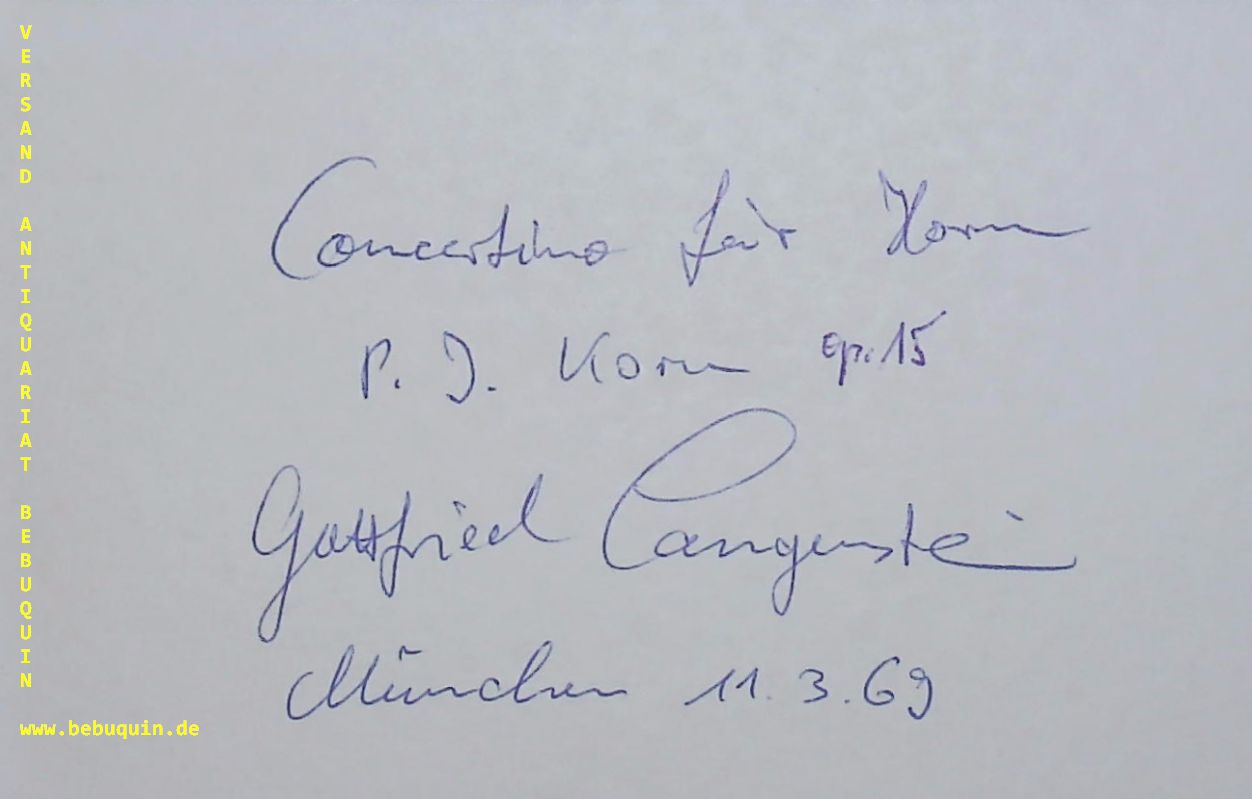 VERSAND ANTIQUARIAT BEBUQUIN
Concertino für Horn
P. J. Korn op. 15
Gottfried Langenstein
München 11.3.69
www.bebuquin.de